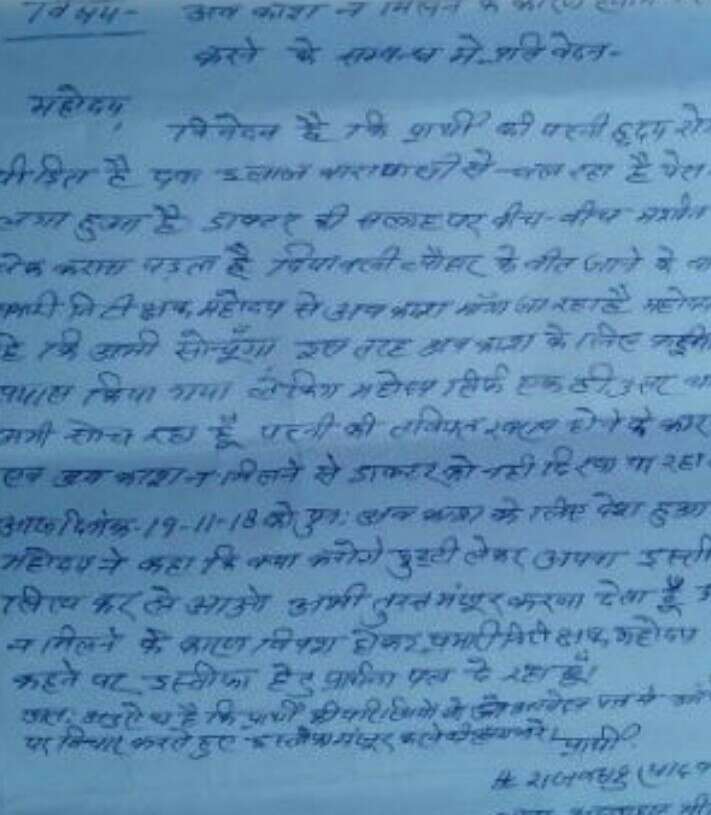 विषय- अवकाश न मिलने के कारण
करने के सम्बन्ध में प्रतिवेदन-
महोदय,
निवेदन है कि प्रार्थी की पत्नी हृदय रो
है इलाज वाराणसी से चल रहा है
लगा हुआ है डाक्टर की सलाह पर बीच-बीच
चेक कराना पड़ता है दीपावली के बीत जाने के
प्रभारी निरीक्षक महोदय से अवकाश माँगा जा रहा है महोदय
है कि अभी सोचूँगा इस तरह अवकाश के लिए कई
प्रयास किया गया लेकिन महोदय सिर्फ एक ही उत्तर
अभी सोच रहा हूँ पत्नी की तबियत खराब होने के कार
एवं अवकाश न मिलने से डाक्टर को नही दिखा पा रहा
आज दिनांक-19-11-18 को पुनः अवकाश के लिए पेश हुआ
महोदय ने कहा कि क्या करोगे छुट्टी लेकर अपना इस्ती
लिख कर ले आओ अभी तुरन्त मंजूर करवा देता हूँ
न मिलने के कारण विवश होकर प्रभारी निरीक्षक महोदय
कहने पर इस्तीफा हेतु प्रार्थना पत्र दे रहा हूँ।
अतः अनुरोध है कि प्रार्थी की परिस्थितियों
पर विचार करते हुए इस्तीफा मंजूर करने की कृपा करें। प्रार्थी